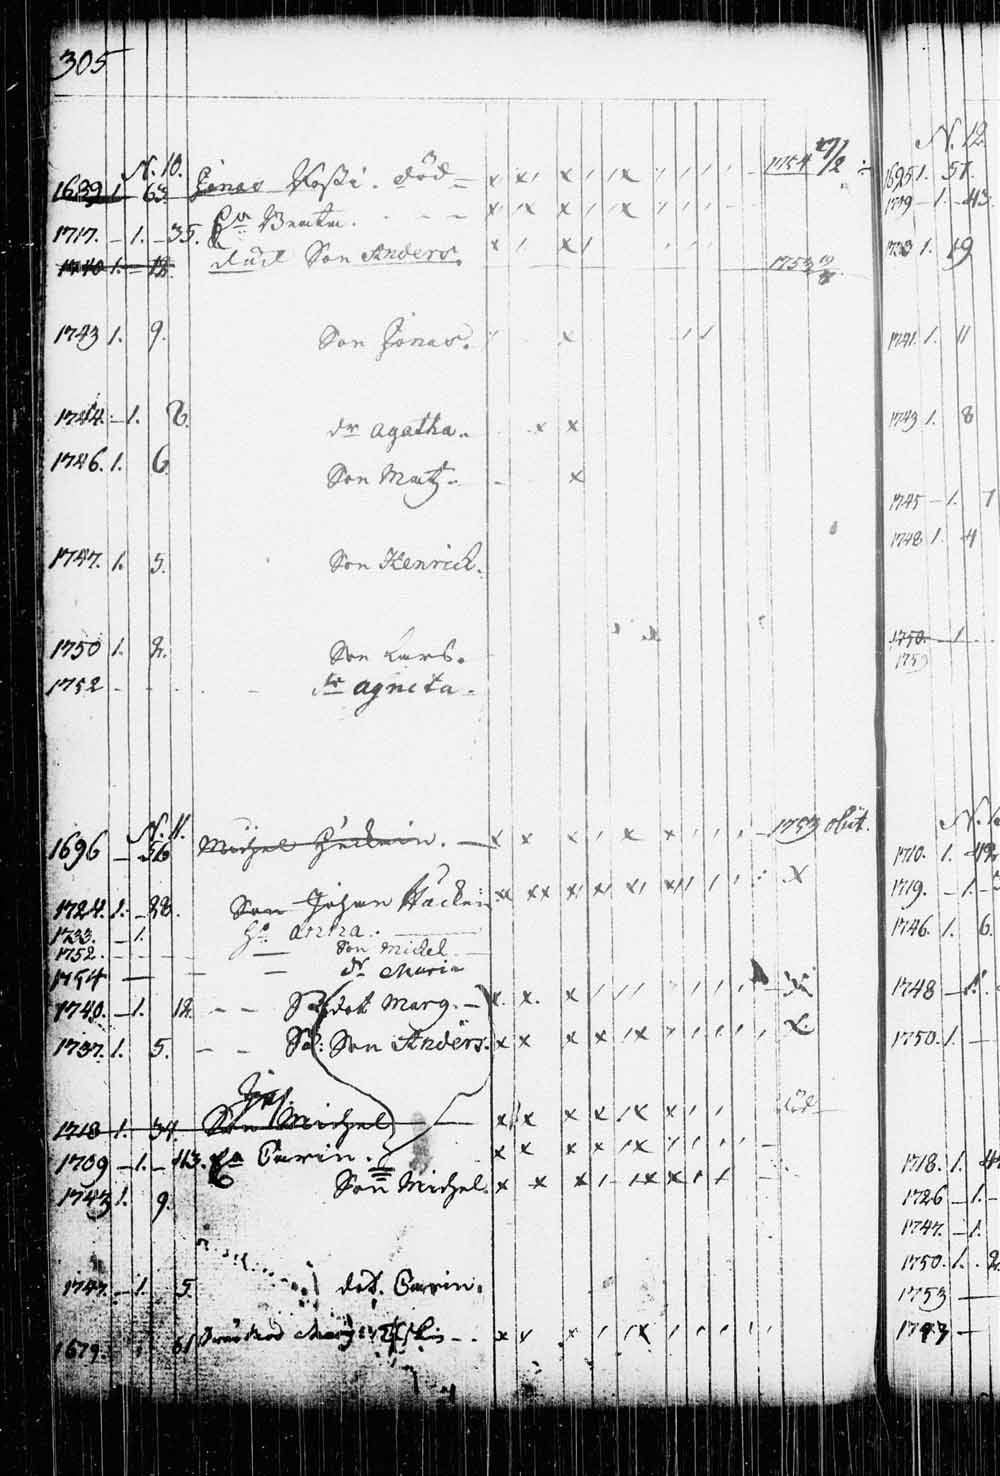 305
N. 10.
1689 1. 63. Jonas Påssi. död 1754 17/2
1717. 1. 35. Beata.
1740 1. 12. död Son Anders. 1753
1743 1. 9. Son Jonas.
1744. 1. 8. dr agatha.
1746. 1. 6. Son Matz.
1747. 1. 5. Son Henrich.
1750 1. 2. Son Lars.
1752 dr agneta.
N. 11.
1696 56 Michel 1753 obiit.
1724. 1. 28. Son Johan Häckein
1733. 1. Ha anna.
1752. Son Michel
1754 dr Maria
1740. 1. 12. dot Marg.
1737. 1. 5. Son Anders.
1718 1. 34. Son Michel död
1709 1. 43. Ha Carin.
1743 1. 9. Son Michel.
1747. 1. 5. dot. Carin.
1679. 61
N. 12.
1695 1. 57.
1709 1. 43.
1733 1. 19
1741. 1. 11
1743 1. 8
1745 1. 7
1748 1. 4
1750. 1.
1753
1710. 1. 42
1719. 1.
1746. 1. 6.
1748 1.
1750. 1.
1718. 1. 4
1726 1.
1747. 1.
1750. 1. 2.
1753